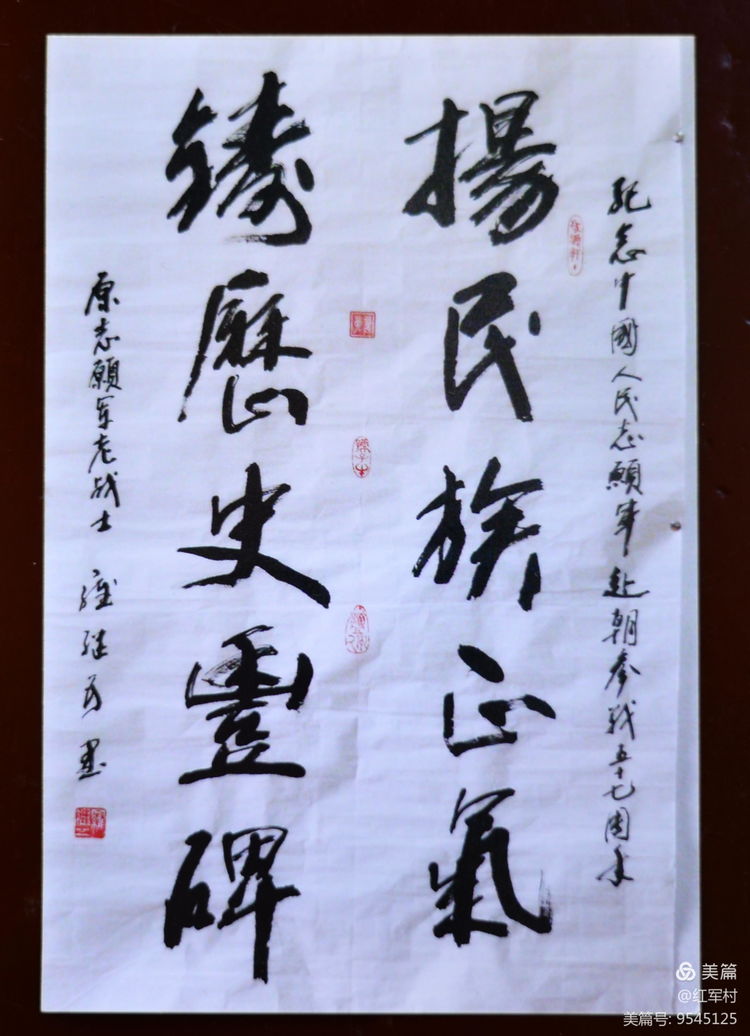 紀念中國人民志願軍赴朝參戰五十七周年
揚民族正氣
鑄歷史豐碑
原志願军老战士
美篇
@红军村
美篇号: 9545125